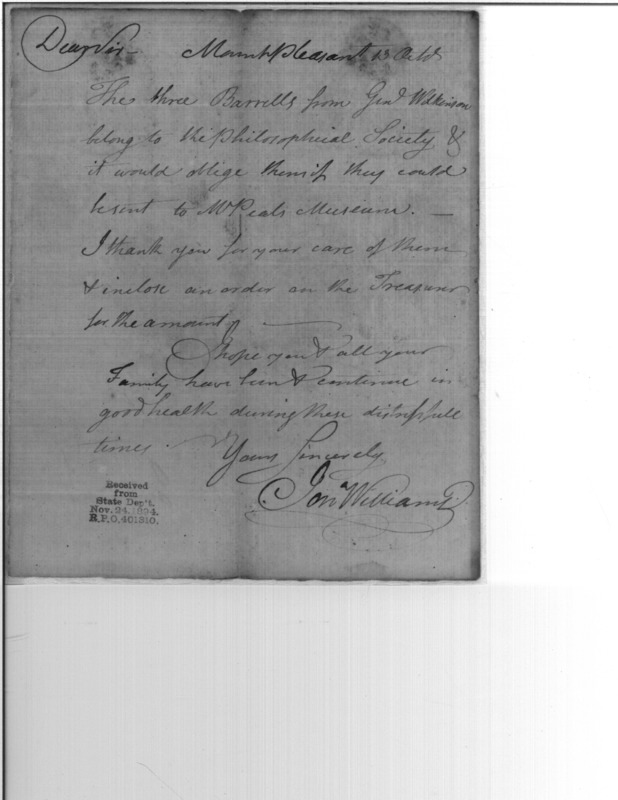 Dear Sir — Mount Pleasant 13 Octr
The three Barrells from Genl Wilkinson
belong to the Philosophical Society &
it would oblige them if they could
be sent to Mr Peals Museum. —
I thank you for your care of them
& inclose an order on the Treasurer
for the amount —
I hope you & all your
Family have been & continue in
good health during these distressfull
times. Yours Sincerely
Jona Williams
Received
from
State Dep't.
Nov. 24, 1894.
R.P.O. 401310.